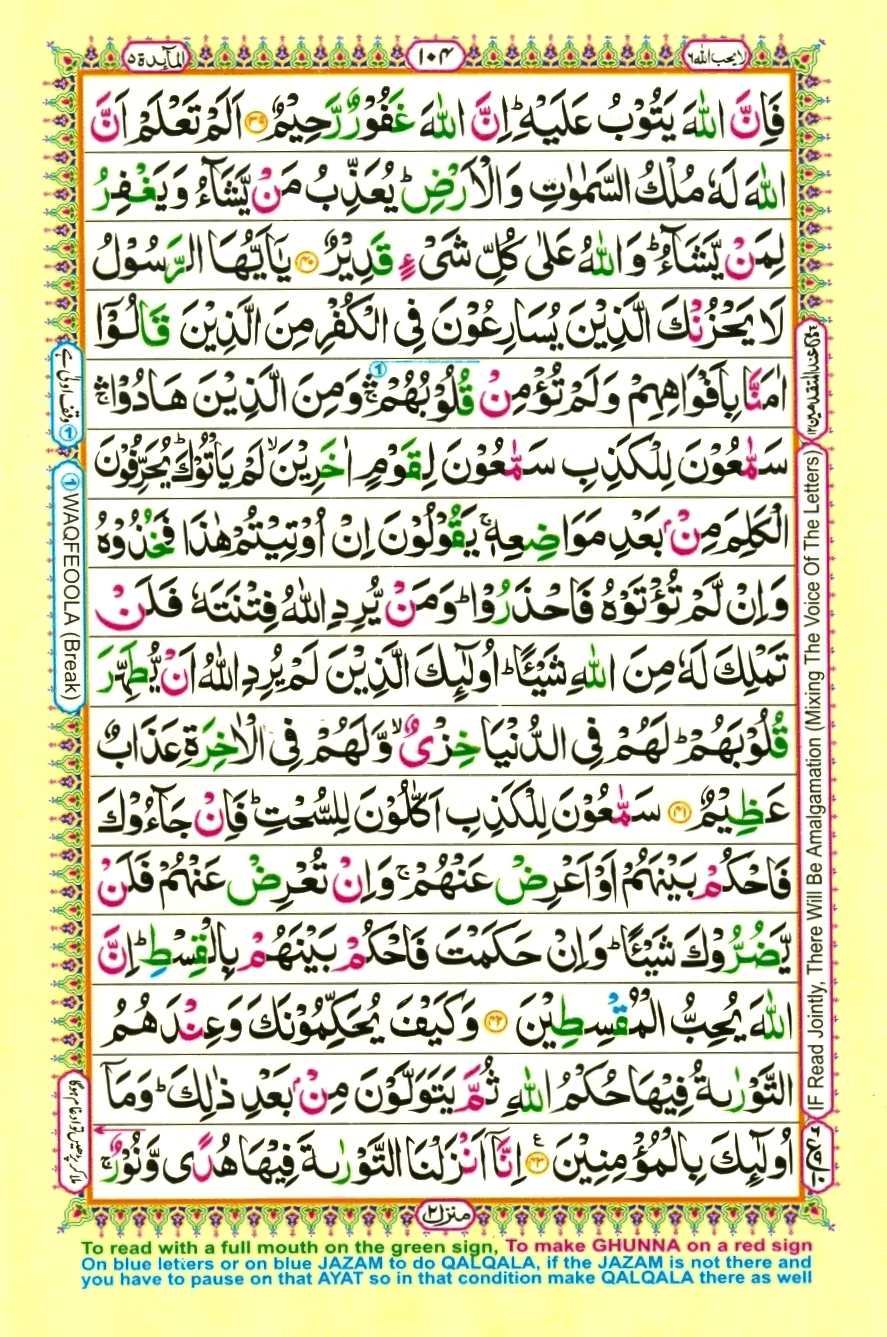 المآىِٕدة ٥
١٠٤
لا یحب الله ٦
فَاِنَّ اللّٰهَ یَتُوْبُ عَلَیْهِ ؕ اِنَّ اللّٰهَ غَفُوْرٌ رَّحِیْمٌ ۝۳۹ اَلَمْ تَعْلَمْ اَنَّ
اللّٰهَ لَهٗ مُلْكُ السَّمٰوٰتِ وَالْاَرْضِ ؕ یُعَذِّبُ مَنْ یَّشَآءُ وَیَغْفِرُ
لِمَنْ یَّشَآءُ ؕ وَاللّٰهُ عَلٰی كُلِّ شَیْءٍ قَدِیْرٌ ۝۴۰ یٰۤاَیُّهَا الرَّسُوْلُ
لَا یَحْزُنْكَ الَّذِیْنَ یُسَارِعُوْنَ فِی الْكُفْرِ مِنَ الَّذِیْنَ قَالُوْۤا
اٰمَنَّا بِاَفْوَاهِهِمْ وَلَمْ تُؤْمِنْ قُلُوْبُهُمْ ۛۚ ① وَمِنَ الَّذِیْنَ هَادُوْا ۛۚ
سَمّٰعُوْنَ لِلْكَذِبِ سَمّٰعُوْنَ لِقَوْمٍ اٰخَرِیْنَ ۙ لَمْ یَاْتُوْكَ ؕ یُحَرِّفُوْنَ
الْكَلِمَ مِنْۢ بَعْدِ مَوَاضِعِهٖ ۚ یَقُوْلُوْنَ اِنْ اُوْتِیْتُمْ هٰذَا فَخُذُوْهُ
وَاِنْ لَّمْ تُؤْتَوْهُ فَاحْذَرُوْا ؕ وَمَنْ یُّرِدِ اللّٰهُ فِتْنَتَهٗ فَلَنْ
تَمْلِكَ لَهٗ مِنَ اللّٰهِ شَیْـًٔا ؕ اُولٰٓىِٕكَ الَّذِیْنَ لَمْ یُرِدِ اللّٰهُ اَنْ یُّطَهِّرَ
قُلُوْبَهُمْ ؕ لَهُمْ فِی الدُّنْیَا خِزْیٌ ۙ وَّلَهُمْ فِی الْاٰخِرَةِ عَذَابٌ
عَظِیْمٌ ۝۴۱ سَمّٰعُوْنَ لِلْكَذِبِ اَكّٰلُوْنَ لِلسُّحْتِ ؕ فَاِنْ جَآءُوْكَ
فَاحْكُمْ بَیْنَهُمْ اَوْ اَعْرِضْ عَنْهُمْ ۚ وَاِنْ تُعْرِضْ عَنْهُمْ فَلَنْ
یَّضُرُّوْكَ شَیْـًٔا ؕ وَاِنْ حَكَمْتَ فَاحْكُمْ بَیْنَهُمْ بِالْقِسْطِ ؕ اِنَّ
اللّٰهَ یُحِبُّ الْمُقْسِطِیْنَ ۝۴۲ وَكَیْفَ یُحَكِّمُوْنَكَ وَعِنْدَهُمُ
التَّوْرٰىةُ فِیْهَا حُكْمُ اللّٰهِ ثُمَّ یَتَوَلَّوْنَ مِنْۢ بَعْدِ ذٰلِكَ ؕ وَمَاۤ
اُولٰٓىِٕكَ بِالْمُؤْمِنِیْنَ ۝۴۳ ع اِنَّاۤ اَنْزَلْنَا التَّوْرٰىةَ فِیْهَا هُدًی وَّنُوْرٌ ۚ
منزل ٢
① وقف اولیٰ ہے
① WAQFEOOLA (Break)
ملا کر پڑھیں تو ادغام ہوگا
IF Read Jointly, There Will Be Amalgamation (Mixing The Voice Of The Letters)
To read with a full mouth on the green sign, To make GHUNNA on a red sign
On blue letters or on blue JAZAM to do QALQALA, if the JAZAM is not there and
you have to pause on that AYAT so in that condition make QALQALA there as well